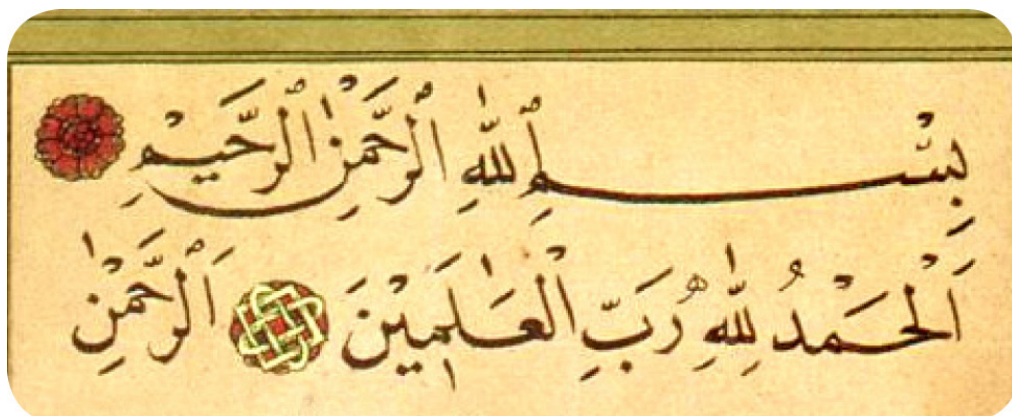 بِسْمِ ٱللّٰهِ ٱلرَّحْمٰنِ ٱلرَّحِيْمِ
اَلْحَمْدُ لِلّٰهِ رَبِّ الْعَالَمِيْنَ اَلرَّحْمٰنِ